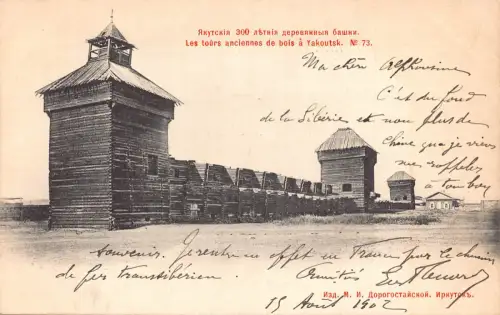 Якутскія 300 лѣтнія деревянныя башни.
Les tours anciennes de bois à Yakoutsk. № 73.
Ma chère Alphonsine
C'est du fond
de la Sibérie et non plus de
Chine que je viens
me rappeler
à ton bon
souvenir. Je rentre en effet en France par le chemin
de fer transsibérien
Amitiés
15 Août 1902
Изд. М. И. Дорогостайской. Иркутскъ.